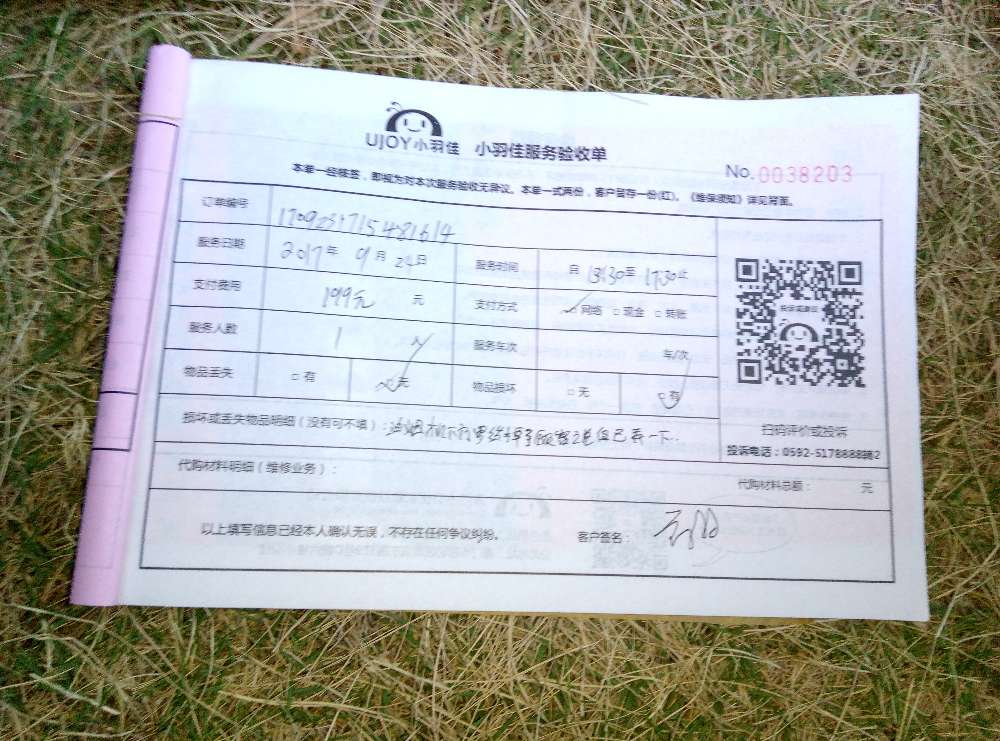 UJOY小羽佳 小羽佳服务验收单
No.0038203
本单一经核签，即视为对本次服务验收无异议。本单一式两份，客户留存一份(红)。《维保须知》详见背面。
订单编号 1709231715481614
服务日期 2017年 9月 24日 服务时间 自 13:30至 17:30止
支付费用 199元 元 支付方式 ☑网络 □现金 □转账
服务人数 1 人 服务车次 车/次
物品丢失 □有 ☑无 物品损坏 □无 ☑有
损坏或丢失物品明细（没有可不填）：油烟机
但已弄一下..
扫码评价或投诉
投诉电话：0592-5178888转2
代购材料明细（维修业务）：
代购材料总额： 元
以上填写信息已经本人确认无误，不存在任何争议纠纷。 客户签名：